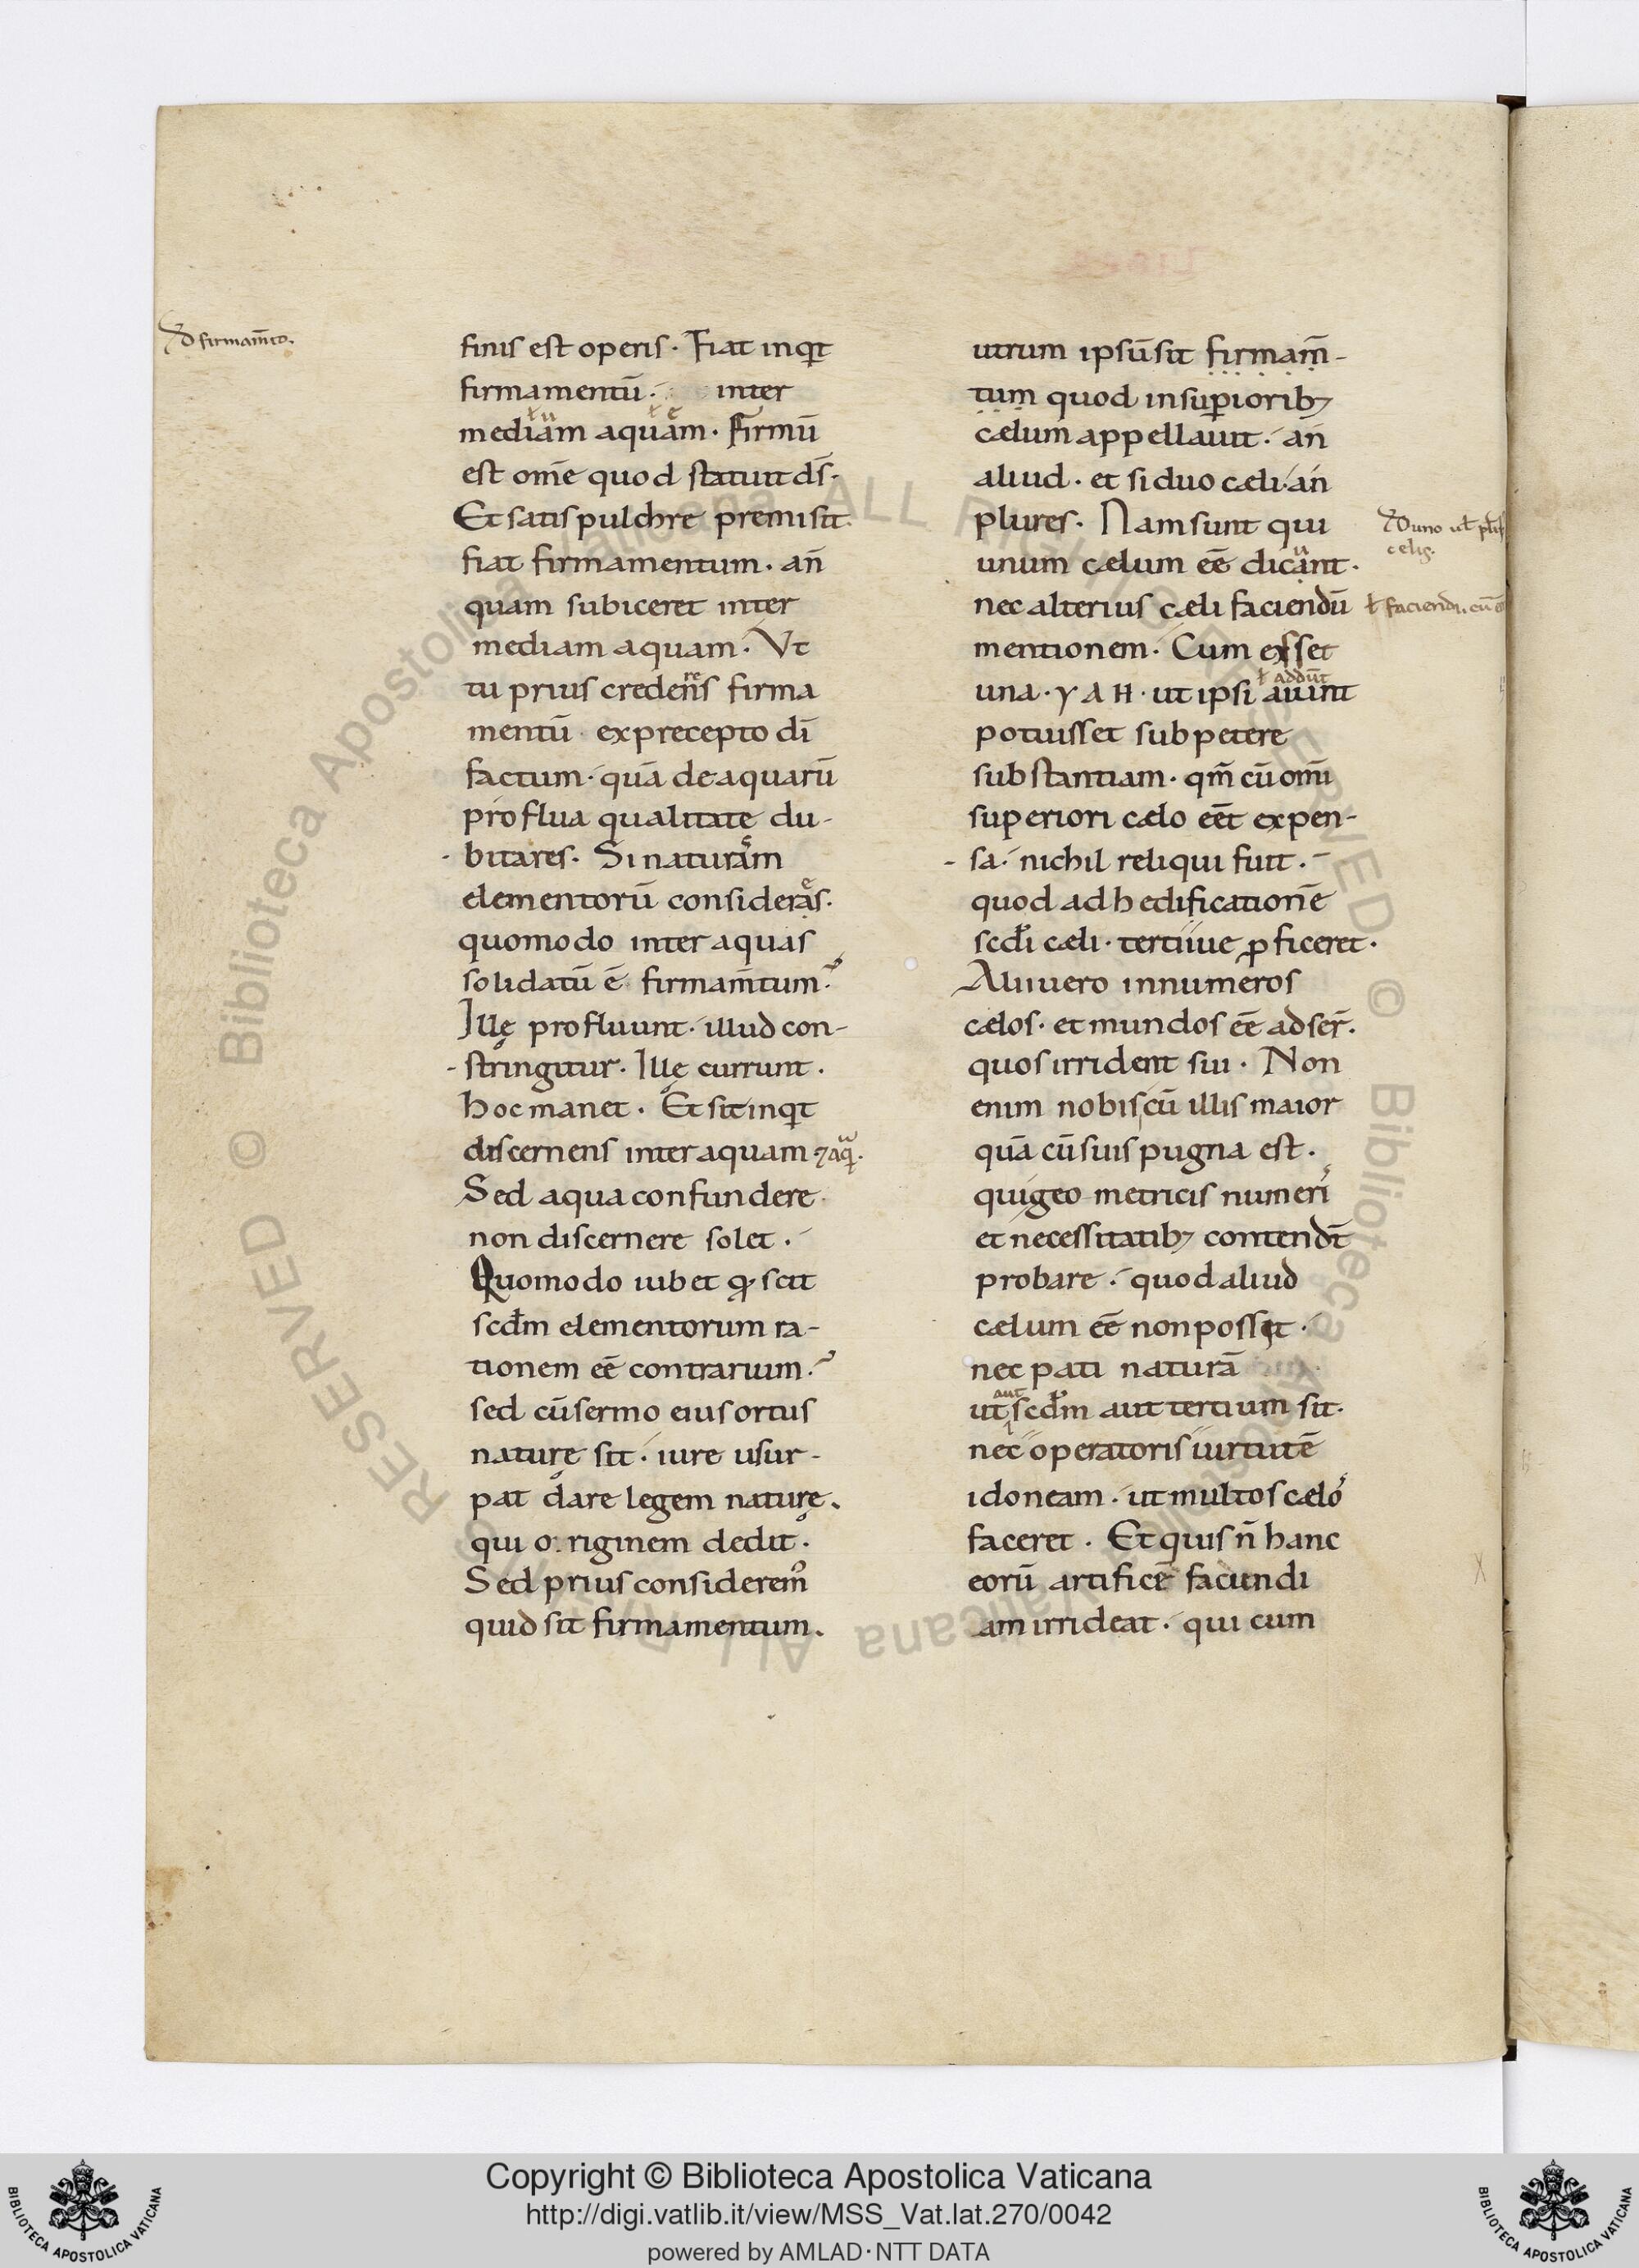 ꝺ firmam̄to.
finis est operis · Fiat inqͥt
firmamentū · inter
mediam aquam · Firmū
ł u ł e
est om̄e quod statuit ds̄ ·
Et satis pulchre premisit
fiat firmamentum · an̄
quam subiceret inter
mediam aquam · Vt
tu prius creden̄s firma
re
mentū · ex precepto dī
factum · quā de aquarū
proflua qualitate du-
- bitares · Si naturam
elementorū consideras ·
e
quomodo inter aquas
solidatū ē firmam̄tum ·
Ille profluunt · illud con-
- stringitur · Ille currunt ·
hoc manet · Et sit inqͥt
discernens inter aquam ⁊ aqͣ ·
Sed aqua confundere
non discernere solet ·
Quomodo iubet qͩ scit
scd̄m elementorum ra-
tionem eē contrarium ·
sed cū sermo eius ortus
naturę sit · iure usur-
pat dare legem naturę ·
qui originem dedit ·
Sed prius considerem᷒
quid sit firmamentum ·
utrum ipsū sit firmam̄-
tum quod in superiorib;
cælum appellauit · an
aliud · et si duo cæli · an
plures · Nam sunt qui
unum cælum eē dicant ·
u
nec alterius cæli faciendū
mentionem · Cum esset
una · Υ Λ Η · ut ipsi auint
ł addūt
potuisset subpetere
substantiam · qm̄ cū om̄i
superiori cælo eēt expen-
- sa · nichil reliqui fuit ·
quod ad hedificationē
scdi cæli · tertiiue ꝓficeret ·
Alii uero innumeros
cælos · et mundos eē adser̄ ·
quos irrident sui · Non
enim nobiscū illis maior
quā cū suis pugna est ·
qui geometricis numeri
et necessitatib; contendt̄
probare · quod aliud
cælum eē non possit ·
nec pati naturā
ut scd̄m aut tertium sit ·
aut
nec operatoris uirtutē
idoneam · ut multos cælo
faceret · Et quis n̄ hanc
eorū artificē facundi
am irrideat · qui cum
ꝺ uno ut
celis ·
ł faciendi cū
Copyright © Biblioteca Apostolica Vaticana
http://digi.vatlib.it/view/MSS_Vat.lat.270/0042
powered by AMLAD·NTT DATA
BIBLIOTECA APOSTOLICA VATICANA
BIBLIOTECA APOSTOLICA VATICANA
© Biblioteca Apostolica Vaticana ALL RIGHTS RESERVED © Biblioteca Apostolica Vaticana ALL RIGHTS RESERVED